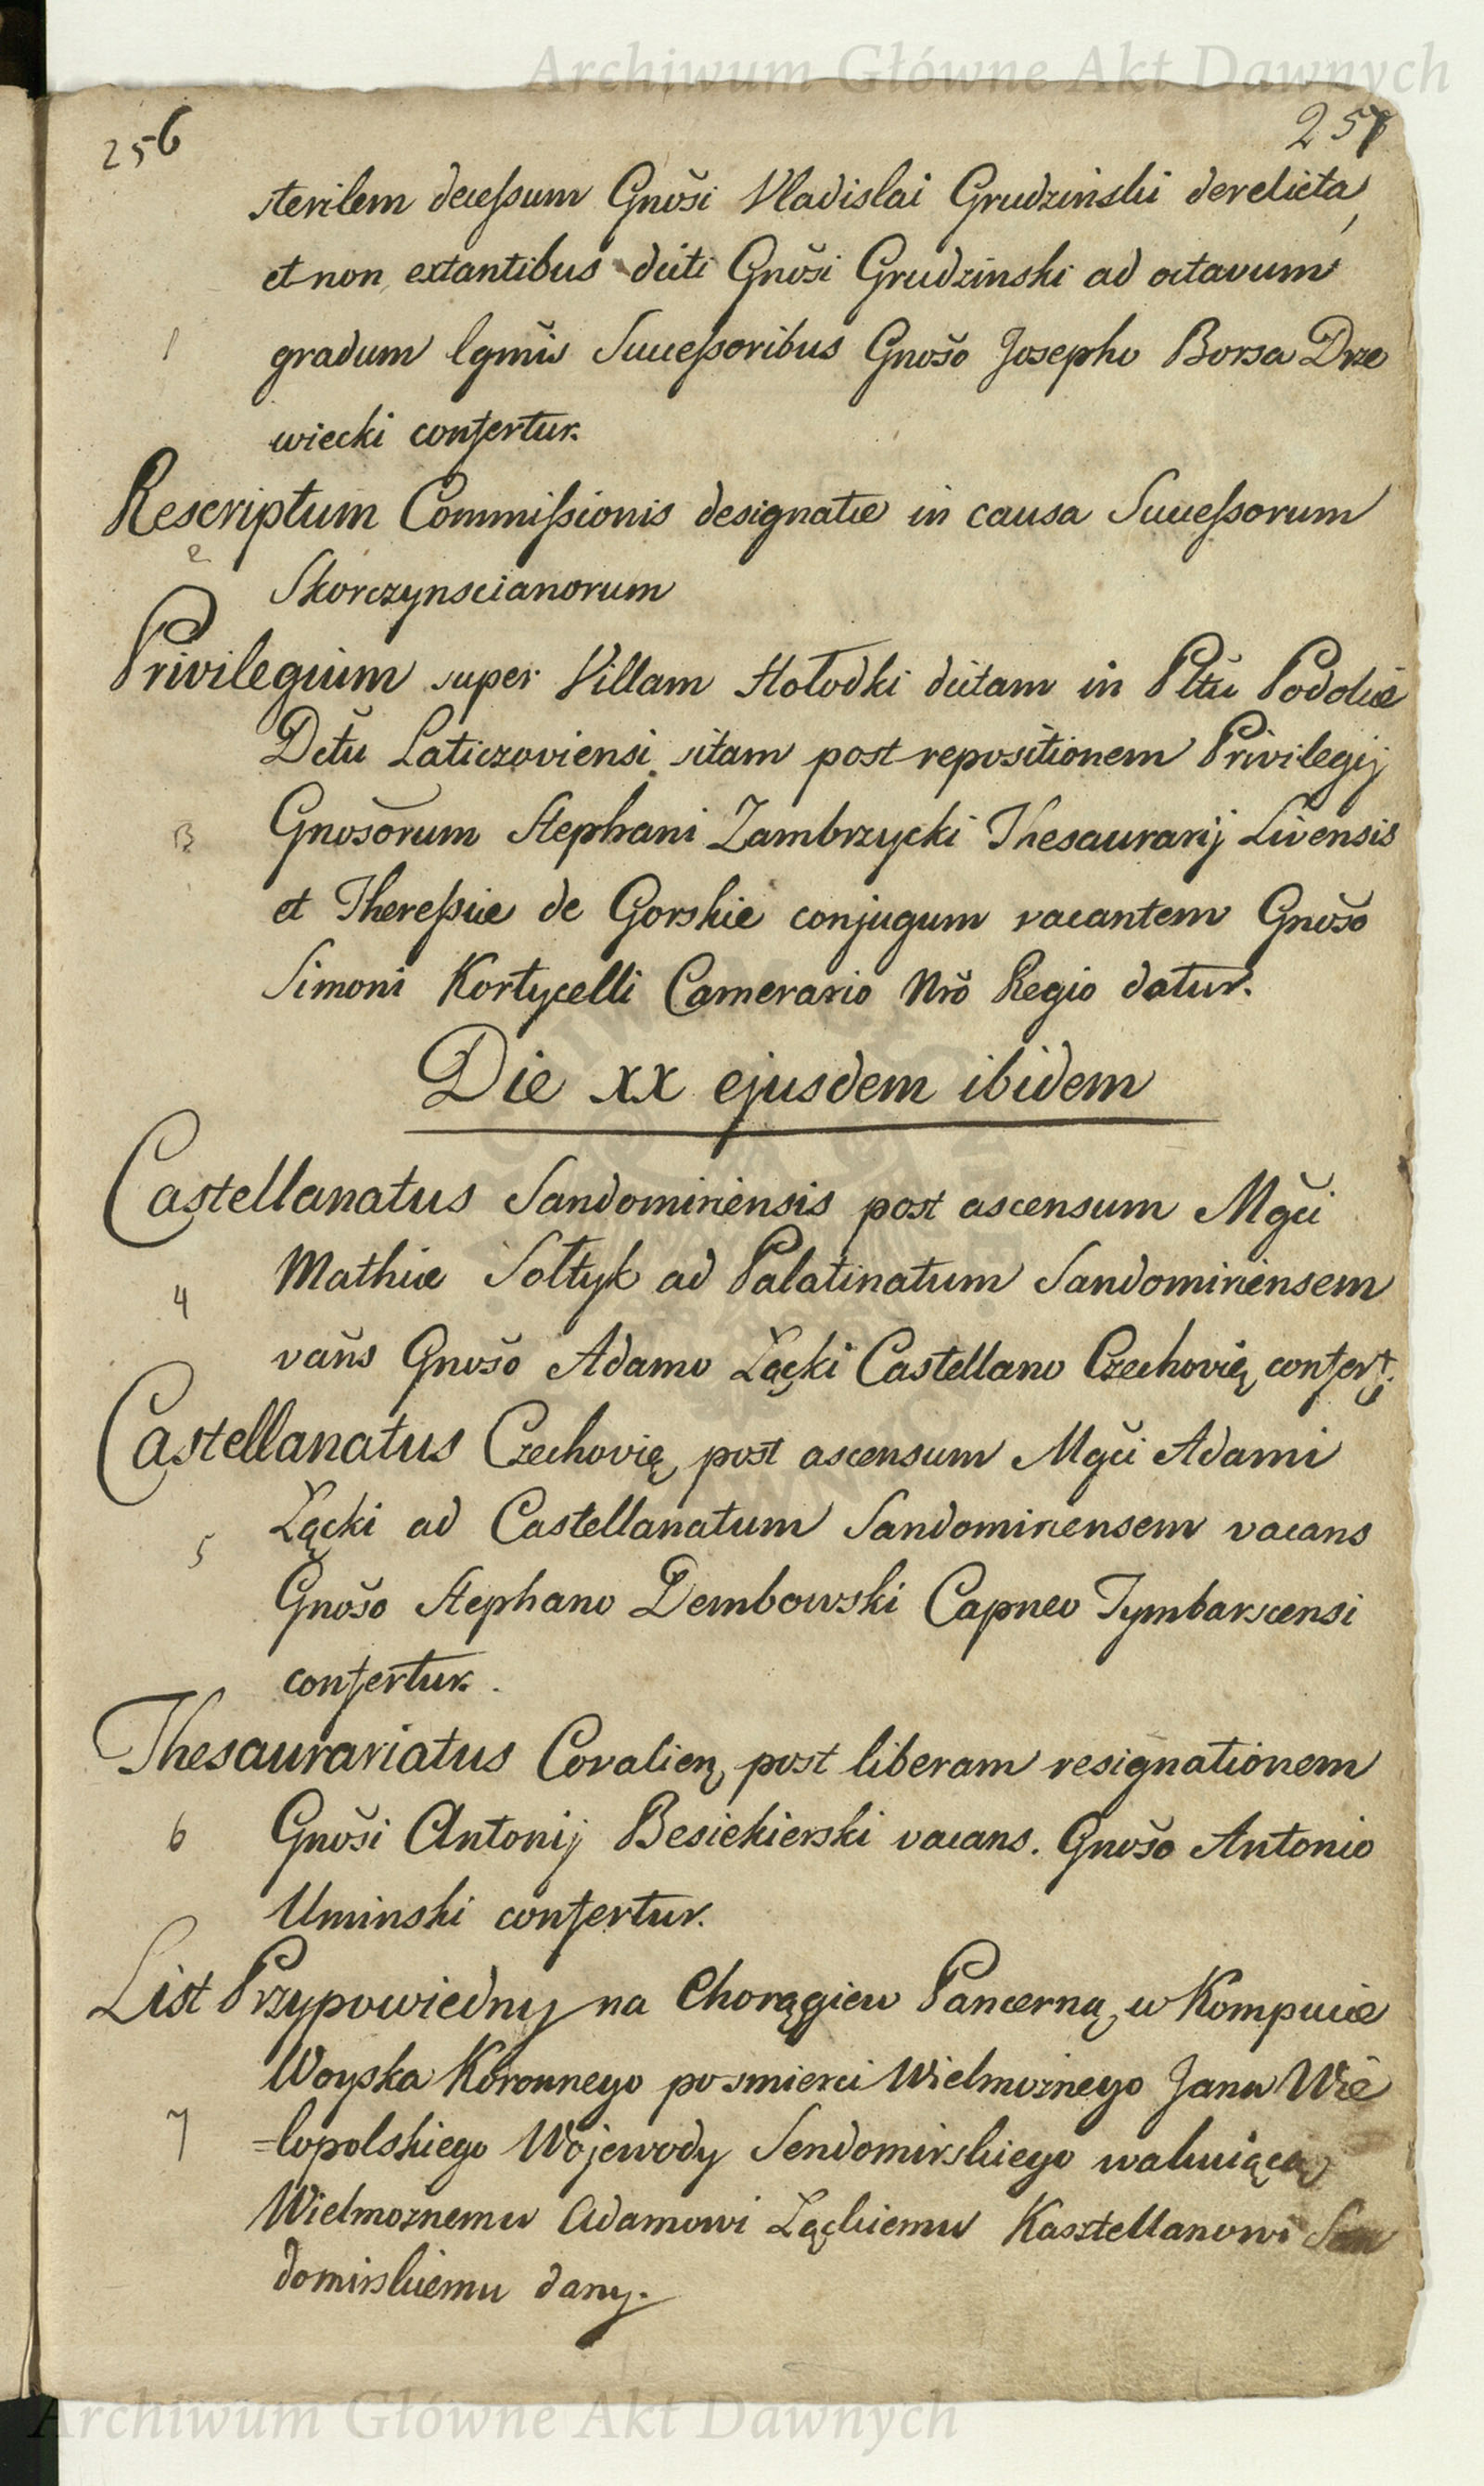 Archiwum Główne Akt Dawnych
256
257
sterilem decessum Gnŏsi Vladislai Grudzinski derelicta,
et non extantibus dicti Gnŏsi Grudzinski ad octavum
1 gradum lgmis Successoribus Gnŏso Josepho Borsa Drze
wiecki confertur.
Rescriptum Commissionis designatæ in causa Successorum
2 Skorczynscianorum
Privilegium super Villam Hołodki dictam in Pltŭ Podoliæ
Dctŭ Laticzoviensi sitam post repositionem Privilegij
3 Gnosorum Stephani Zambrzycki Thesaurarij Livensis
et Theressiæ de Gorskie conjugum vacantem Gnŏso
Simoni Kortycelli Camerario Nrŏ Regio datur.
Die XX ejusdem ibidem
Castellanatus Sandomiriensis post ascensum Mgci
4 Mathiæ Sołtyk ad Palatinatum Sandomiriensem
vañs Gnŏso Adamo Łącki Castellano Czechovię confert.
Castellanatus Czechovię post ascensum Mgci Adami
5 Łącki ad Castellanatum Sandomiriensem vacans
Gnŏso Stephano Dembowski Capneo Tymbarscensi
confertur.
Thesaurariatus Covalien post liberam resignationem
6 Gnŏsi Antonij Besiekierski vacans. Gnŏso Antonio
Uminski confertur.
List Przypowiedny na Chorągiew Pancerną w Kompucie
Woyska Koronnego po smierci Wielmoznego Jana Wie
7 =lopolskiego Wojewody Sendomirskiego wakuiącą
Wielmoznemu Adamowi Łąckiemu Kasztellanowi San
domirskiemu dany.
Archiwum Główne Akt Dawnych